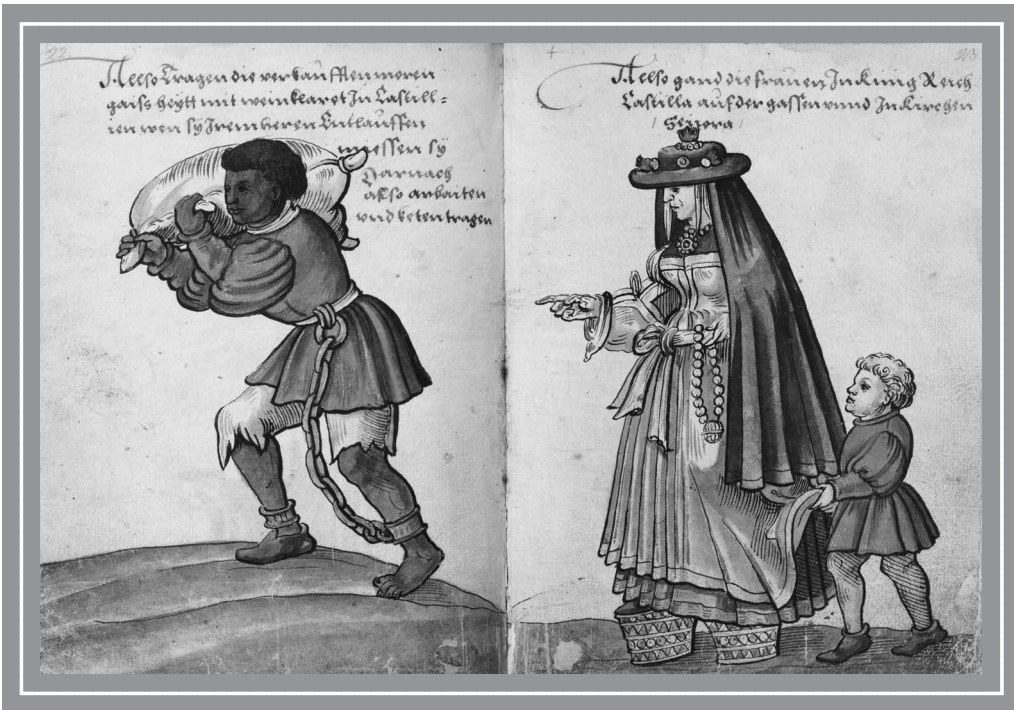 22
Allso tragen die verkaufften moren
gaiss heytt mit wein klaret In Castill=
ien wen sy Irem heren Entlauffen
muessen sy
Darnach
also arbaiten
und keten tragen
23
Allso gand die frauen In Küng Reich
Castilla auf der gassen unnd In Kirchen
Senora